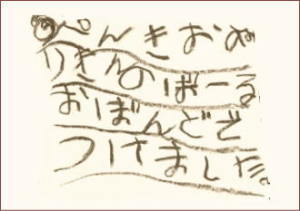 ぺんきおぬ
りきんのばーる
おばんどで
つけました。